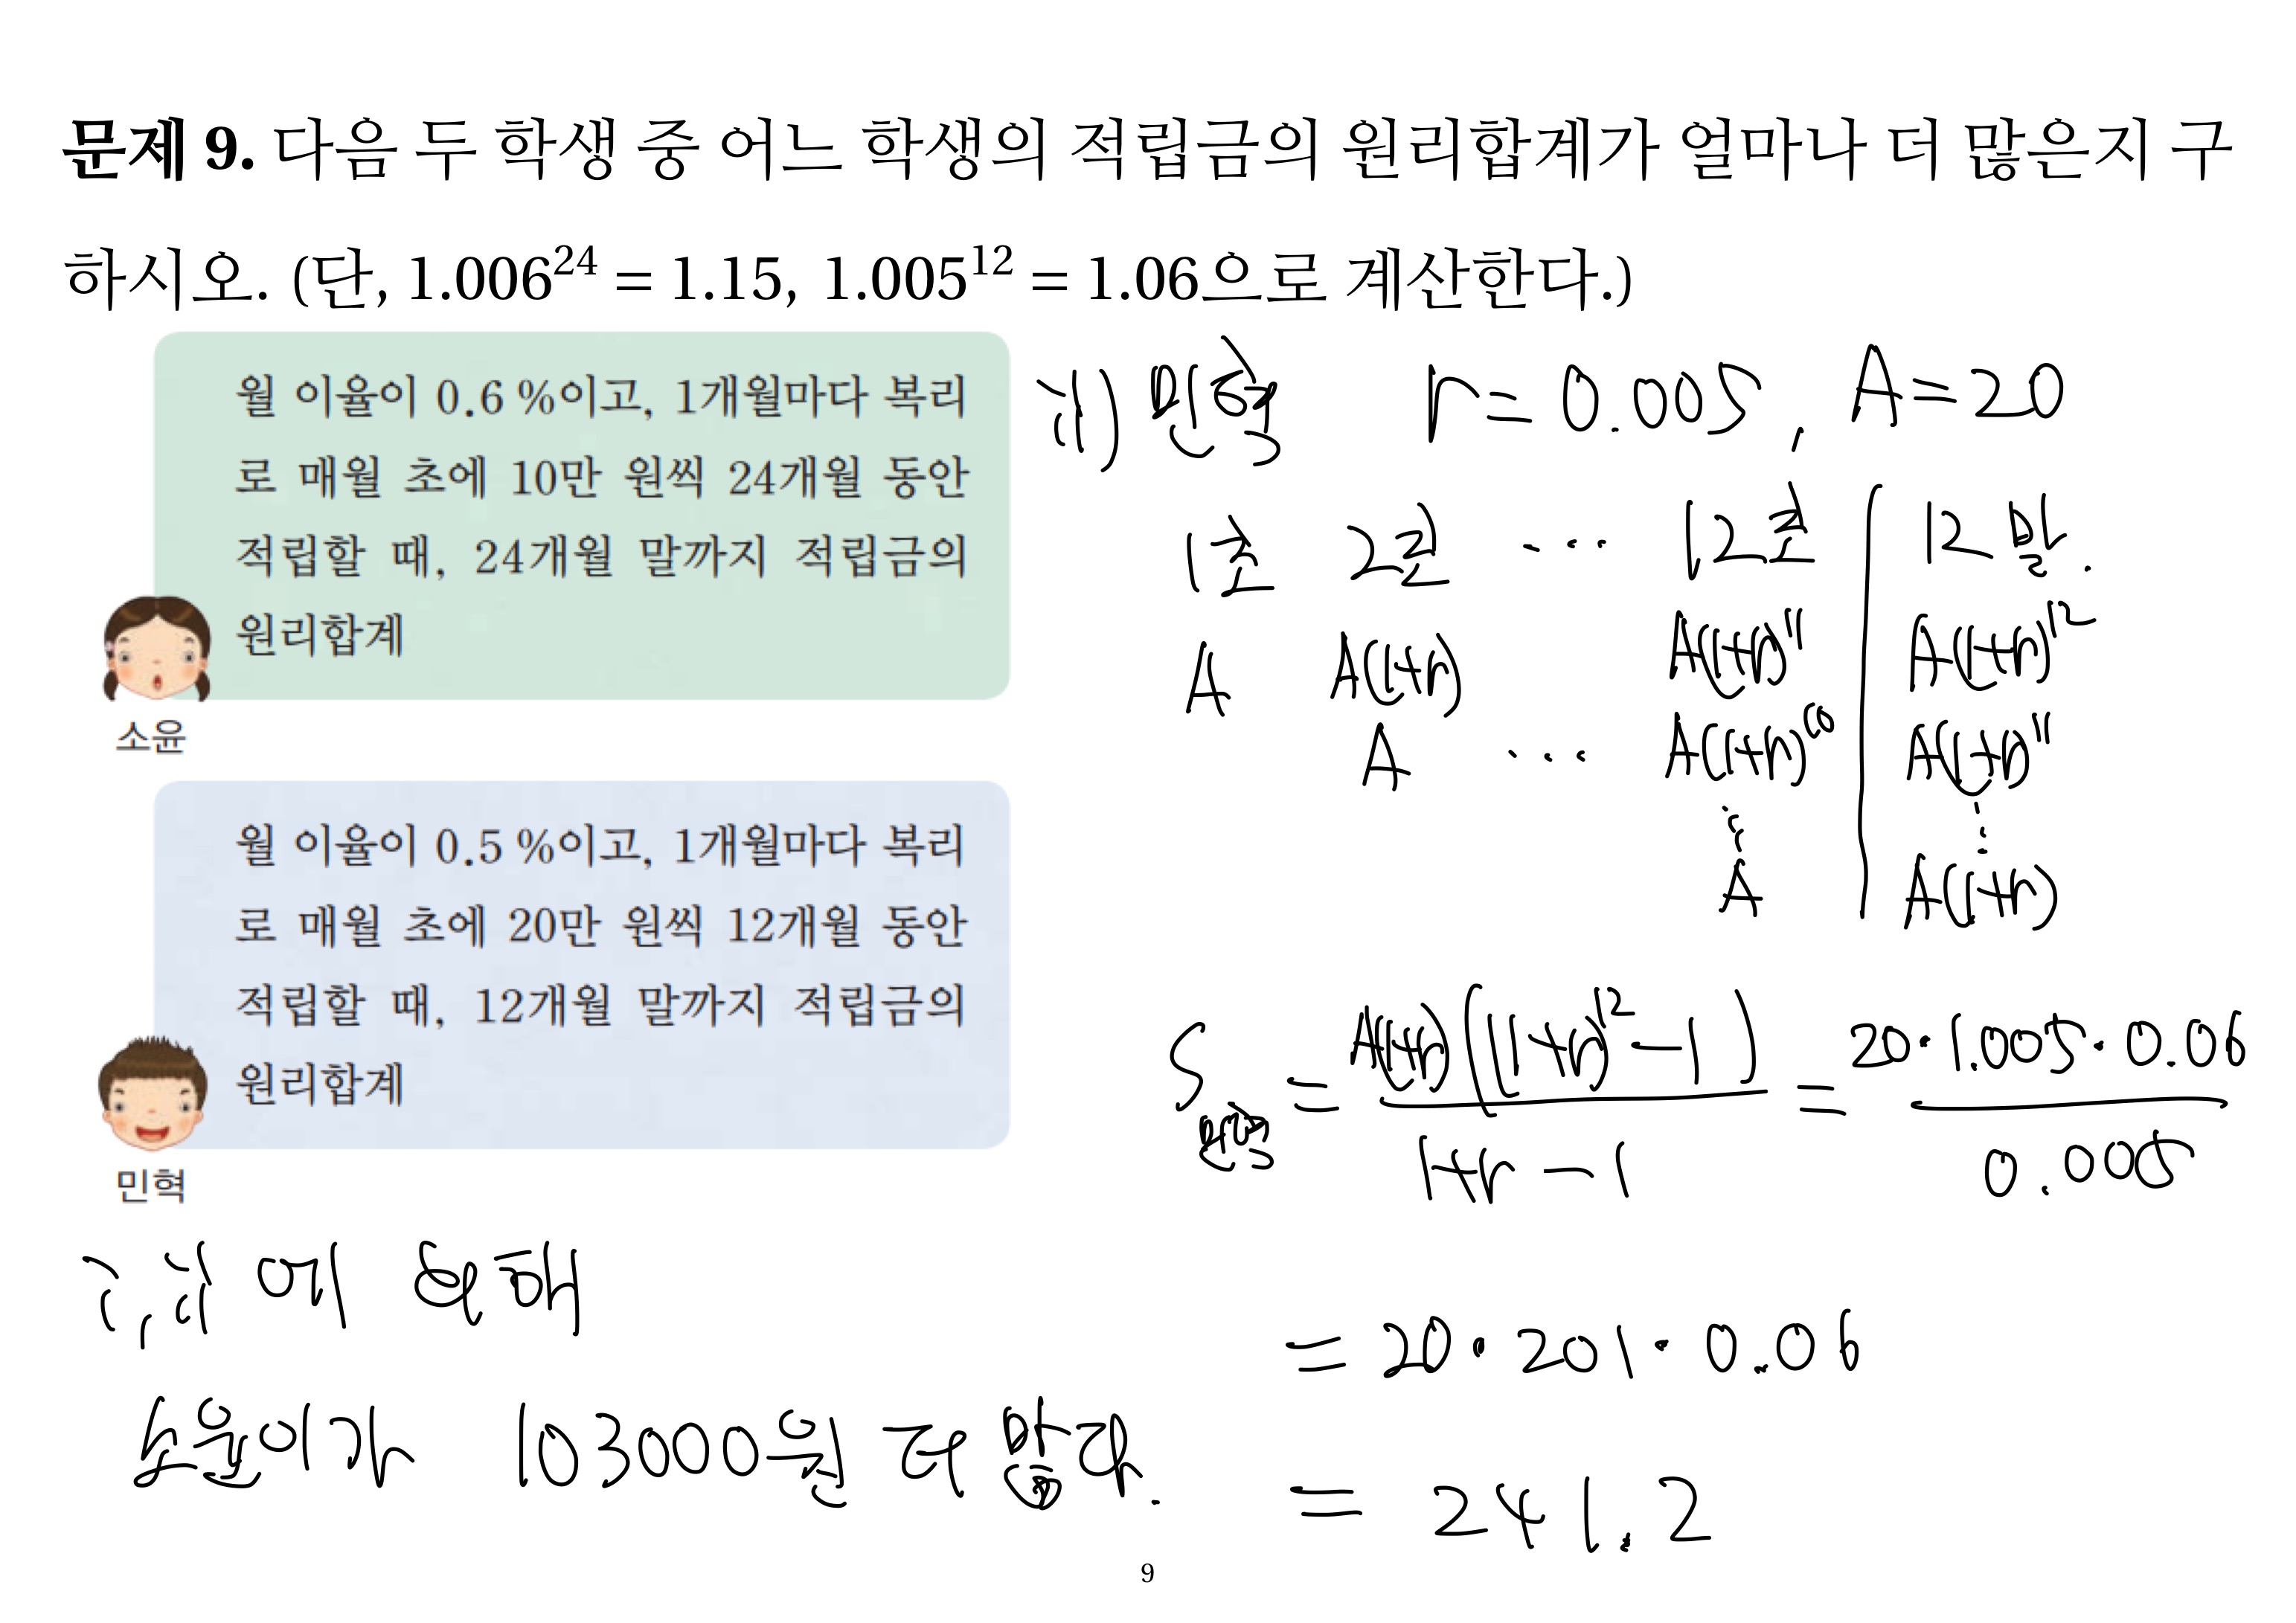 문제 9. 다음 두 학생 중 어느 학생의 적립금의 원리합계가 얼마나 더 많은지 구
하시오. (단, 1.006^24 = 1.15, 1.005^12 = 1.06으로 계산한다.)
월 이율이 0.6 %이고, 1개월마다 복리
로 매월 초에 10만 원씩 24개월 동안
적립할 때, 24개월 말까지 적립금의
원리합계
소윤
월 이율이 0.5 %이고, 1개월마다 복리
로 매월 초에 20만 원씩 12개월 동안
적립할 때, 12개월 말까지 적립금의
원리합계
민혁
ii) 민혁 r = 0.005, A = 20
1초 2초 ... 12초 | 12말.
A A(1+r) A(1+r)^11 | A(1+r)^12
A ... A(1+r)^10 | A(1+r)^11
⋮ | ⋮
A | A(1+r)
S민혁 = A(1+r)((1+r)^12 - 1) / (1+r-1) = 20·1.005·0.06 / 0.005
= 20·201·0.06
= 241.2
i, ii 에 의해
소윤이가 103000원 더 많다.
9